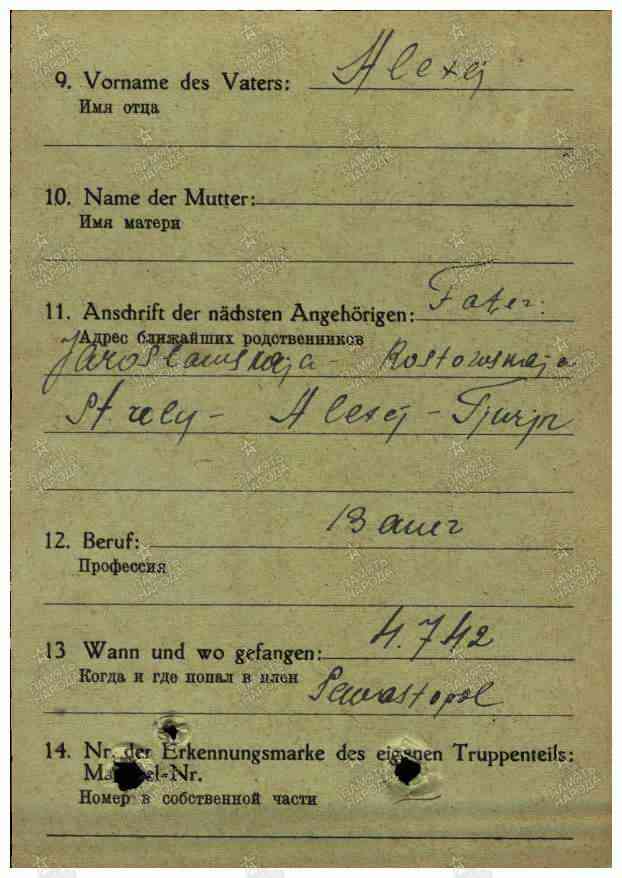 9. Vorname des Vaters: Alexej
Имя отца
10. Name der Mutter:
Имя матери
11. Anschrift der nächsten Angehörigen: Fater.
Адрес ближайших родственников
Jaroslawskaja - Rostowskaja
St. - Alexej - Tjurjn
12. Beruf: Bauer
Профессия
13 Wann und wo gefangen: 4.7 42
Когда и где попал в плен Sewastopol
14. Nr. der Erkennungsmarke des eigenen Truppenteils:
Nr.
Номер в собственной части
ПАМЯТЬ НАРОДА